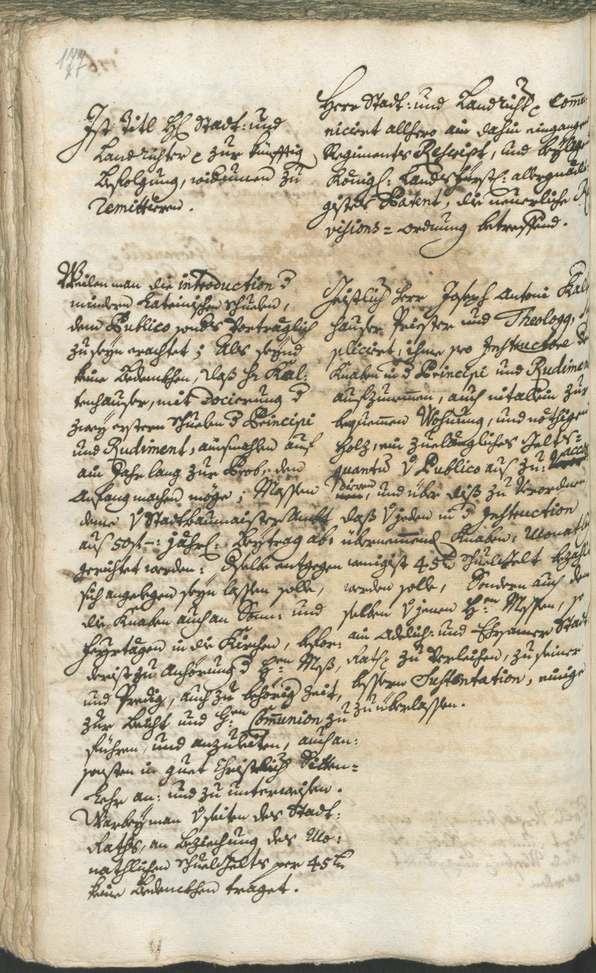 177
Ist Titl H Stadt: und
Landrichter zur künfftig
Befolgung, widerumen zu
remittieren.
Herr Stadt: und Landricht Com̄u
niciert allhero ain dahin eingange
Regiments Rescript, und
Königl: Landtsfürstl: allergnädi
gistes Patent, die neuerliche R
visions=Ordnung betreffend.
Weilen man die introduction d
mindern Lateinischen Schuelen,
dem Publico sonders Vorträglich
zu seyn erachtet; Als seynd
keine Bedenckhen, daß H: Kal
tenhauser, mit docierung d
zwey erstern Schuelen d Principi
und Rudiment, ainsmahlen auf
ain Jahr lang zur Prob, den
Anfang machen möge; Massen
deme V Stadtbaumaister Ambt
auß 50 f: jährl: Beytrag ab:
gereichet werden: Dselbe entgegen
sich angelegen seyn lassen solle,
die Knaben auch an Sonn: und
Feyrtägen in die Kirchen, besor:
derist zu Anhörung d H: Meß,
und Predig, auch zu behörig Zeit,
zur Beicht und H: Com̄union zu
führen, und anzuleiten, auch an:
sonsten in guet Christlich Sitten=
Lehr an: und zu unterweisen.
Warbey man V seiten des Stadt:
Raths, an Beziehung des Mo:
nathlichen Schuelgelts per 45 k
keine Bedenckhen traget.
Geistlich Herr Joseph Antoni Kal
hauser Priester und Theolog,
pliciert, ihme pro Instructore de
Knaben in d Principi und Rudimen
aufzunemmen, auch nit allein zur
bequemmen Wohnung, und nöthigen
Holz, ein zuelängliches Gelts=
quantu V Publico auß zu:
und über diß zu Verordnen
daß V jeden in d Instruction
übernemmend Knaben: Monath
wenigist 45 k Schuelgelt bezahl
werden solle, Sondern auch dem
selben V jenen H: Messen, so
ain Adelich: und Ehrsamer Stadt
Rath zu Verleihen, zu seiner
bessern Sustentation, einige
zu überlassen.